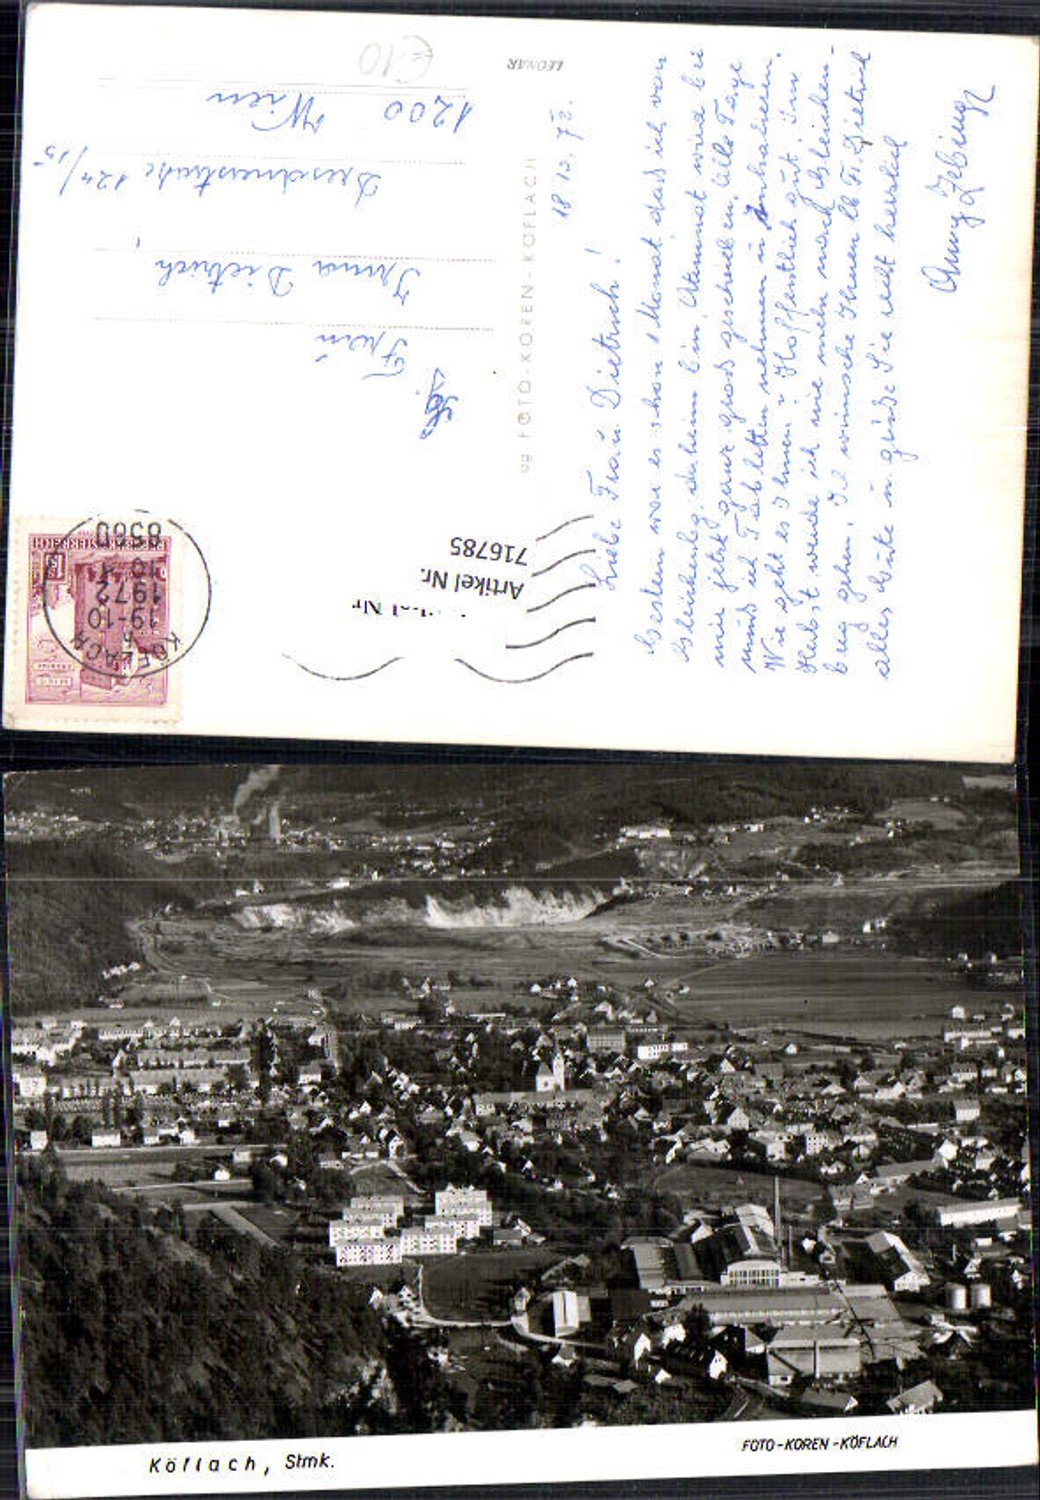 €10
LEONAR
Frau
Irma Dietrich
Dresdnerstraße 124/15
1200 Wien
og FOTO-KOREN-KÖFLACH
REPUBLIK ÖSTERREICH
KÖFLACH
19-10
1972
8580
Artikel Nr.
716785
18.10.72.
Liebe Frau Dietrich!
Gestern war es schon 1 Monat, daß ich von
Gleichenbg. daheim bin. Atemnot wird bei
mir jetzt ganz groß geschrieben. Alle Tage
muß ich Tabletten nehmen u. Inhalieren.
Wie geht es Ihnen? Hoffentlich gut. Im
Herbst werde ich nie mehr nach Gleichen-
berg gehen. Ich wünsche Ihnen lb. Fr. Dietrich
alles Gute u. grüße Sie recht herzlich
Köflach, Stmk.
FOTO-KOREN-KÖFLACH